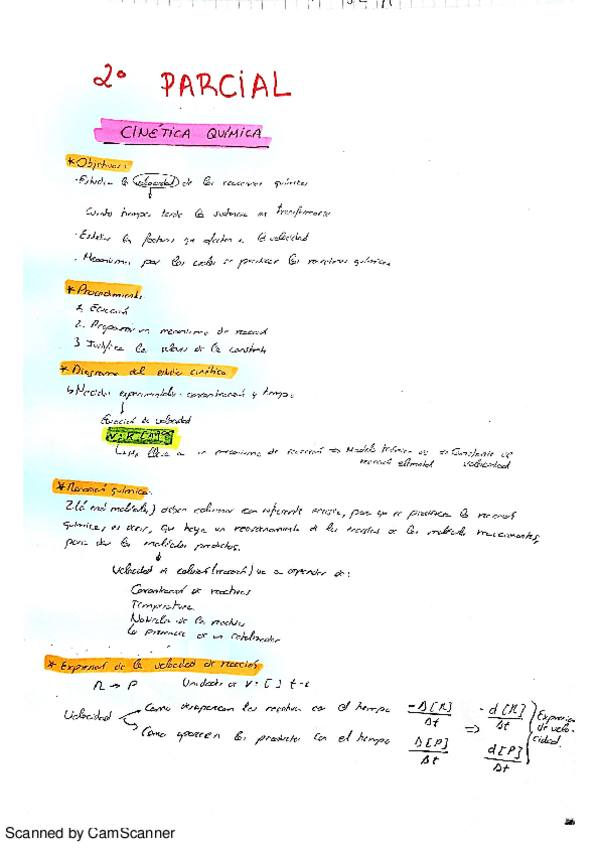 2º PARCIAL
CINÉTICA QUÍMICA
* Objetivos:
· Estudiar la velocidad de las reacciones químicas
Cuanto tiempo tarda la sustancia en transformarse
· Estudiar los factores que afectan a la velocidad
· Mecanismos por los cuales se producen las reacciones químicas
* Procedimiento
1. Ecuación
2. Proponer un mecanismo de reacción
3 Justificar los valores de la constante
* Diagrama del estudio cinético
↳ Medidas experimentales: concentración y tiempo
↓
Ecuación de velocidad
↳ Me lleva a un mecanismo de reacción ⇒ Modelo teórico de ⇒ Constante de
reacción elemental velocidad
* Reacción química:
2 (ó más moléculas) deben colisionar con suficiente energía, para que se produzca la reacción
química, es decir, que haya un reordenamiento de los enlaces de las moléculas reaccionantes,
para dar las moléculas productos.
↓
Velocidad de colisión (reacción) va a depender de:
Concentración de reactivos
Temperatura
Naturaleza de los reactivos
La presencia de un catalizador
* Expresión de la velocidad de reacción
R → P Unidades de v = [ ] t⁻¹
Velocidad
Como desaparecen los reactivos con el tiempo -Δ[R]/Δt ⇒ -d[R]/Δt
Como aparecen los productos con el tiempo Δ[P]/Δt d[P]/Δt
Expresión
de velo-
cidad.
Scanned by CamScanner